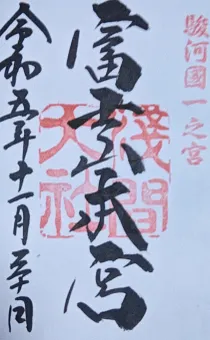 駿河國一之宮
富士本宮
淺間大社
令和五年十一月三十日